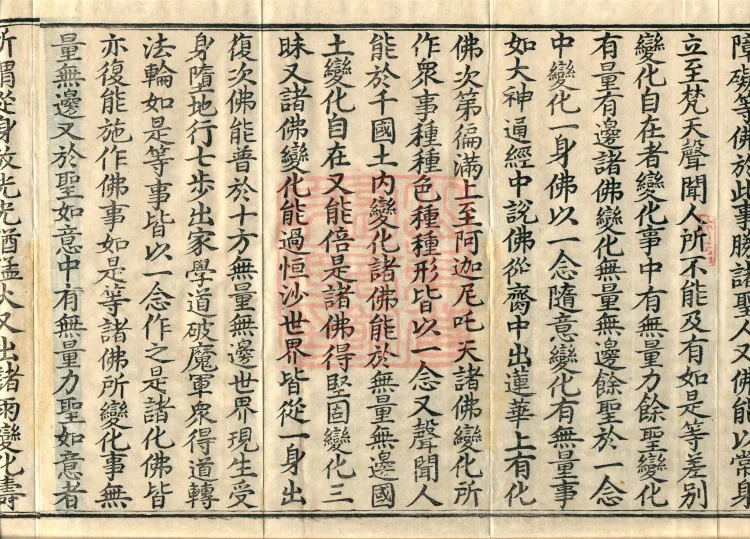 障礙等佛於此事勝諸聖人又佛能以常身
立至梵天聲聞人所不能及有如是等差別
變化自在者變化事中有無量力餘聖變化
有量有邊諸佛變化無量無邊餘聖於一念
中變化一身佛以一念隨意變化有無量事
如大神通經中說佛從齎中出蓮華上有化
佛次第徧滿上至阿迦尼吒天諸佛變化所
作眾事種種色種種形皆以一念又聲聞人
能於千國土內變化諸佛能於無量無邊國
土變化自在又能倍是諸佛得堅固變化三
昧又諸佛變化能過恒沙世界皆從一身出
復次佛能普於十方無量無邊世界現生受
身墮地行七步出家學道破魔軍眾得道轉
法輪如是等事皆以一念作之是諸化佛皆
亦復能施作佛事如是等諸佛所變化事無
量無邊又於聖如意中有無量力聖如意者
所謂從身放光光猶猛火又出諸雨變化壽